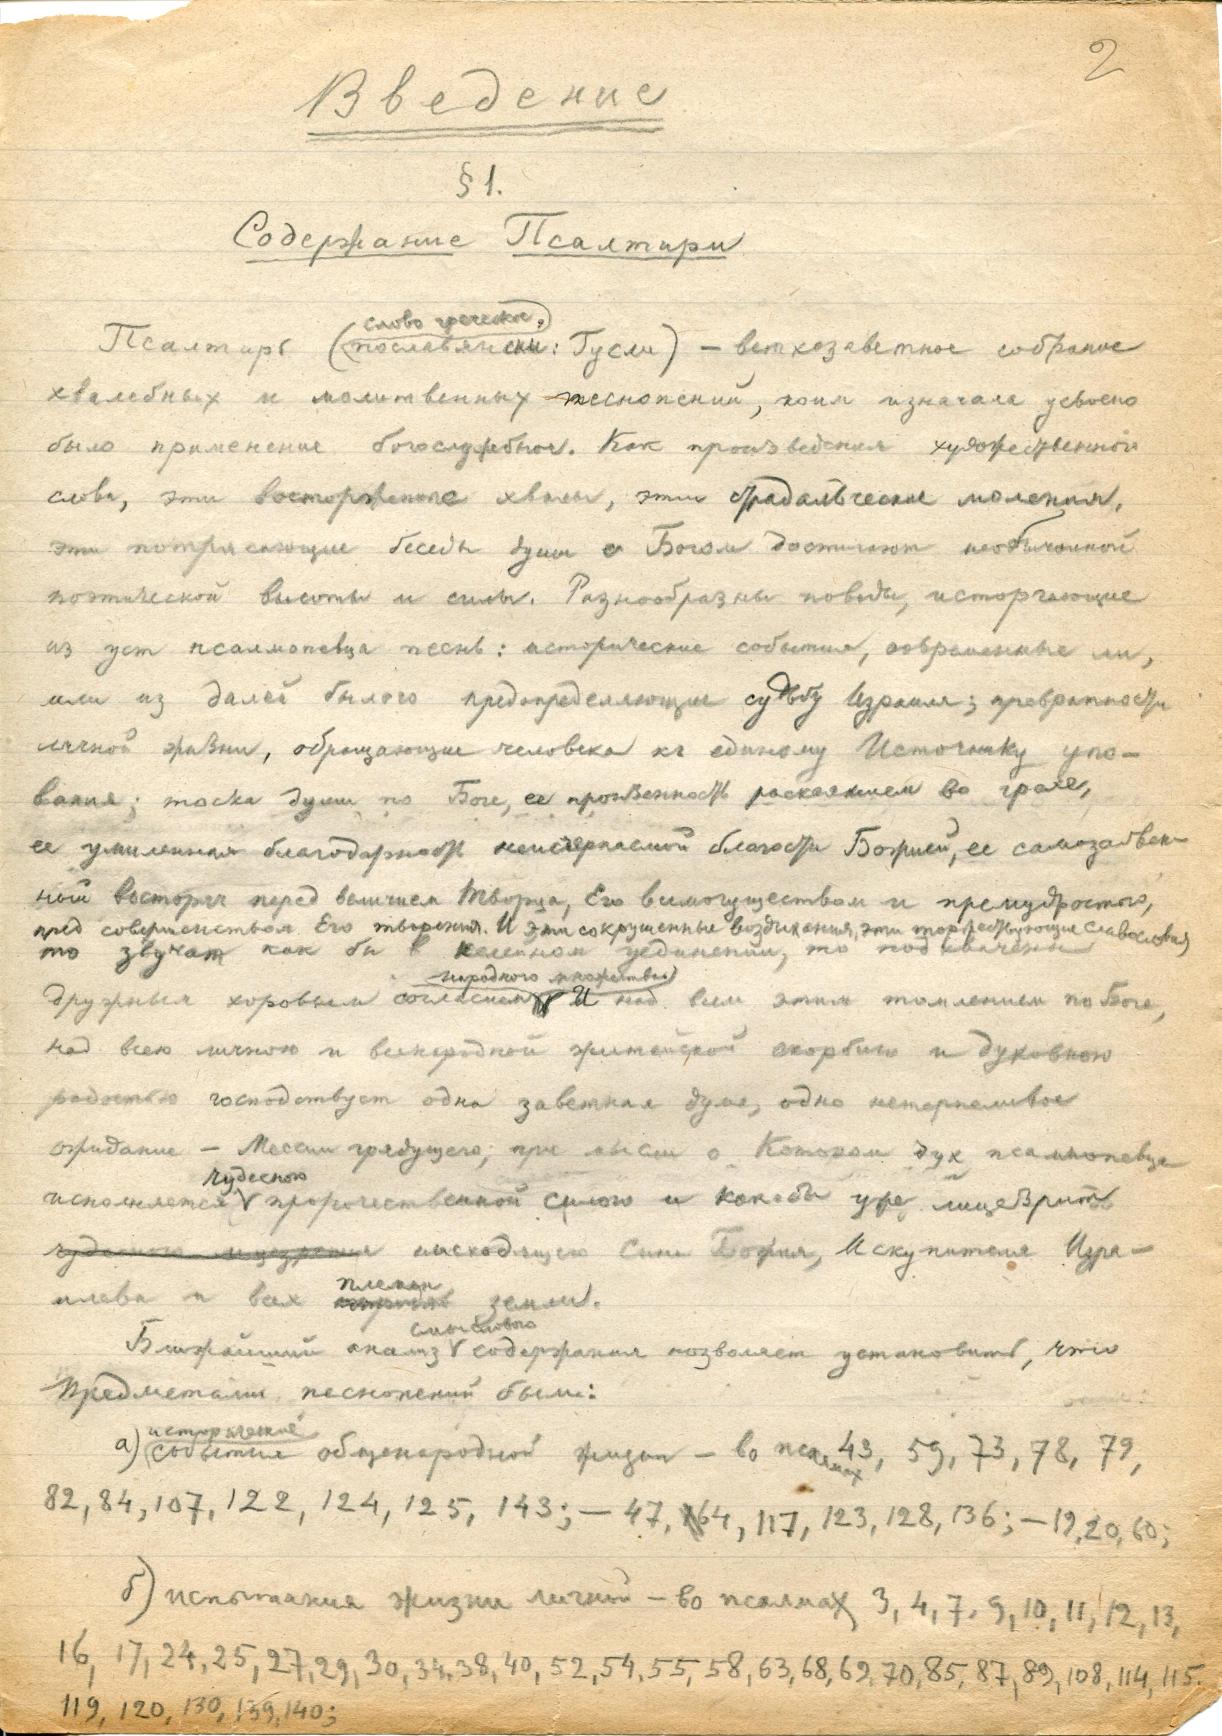 2
Введение
§ 1.
Содержание Псалтири
слово греческое,
Псалтирь (пославянски: Гусли) – ветхозаветное собрание
хвалебных и молитвенных песнопений, коим изначала усвоено
было применение богослужебное. Как произведения художественного
слова, эти восторженные хвалы, эти страдальческие моления,
эти потрясающие беседы души с Богом достигают необычайной
поэтической высоты и силы. Разнообразны поводы, исторгающие
из уст псалмопевца песнь: исторические события, современные ли,
или из далей былого предопределяющие судьбу Израиля; превратности
личной жизни, обращающие человека къ единому Источнику упо-
вания; тоска души по Боге, ее пронзенность раскаянием во грехе,
ее умиленная благодарность неисчерпаемой благости Божией, ее самозабвен-
ный восторг перед величием Творца, Его всемогуществом и премудростью,
пред совершенством Его творения. И эти сокрушенные воздыхания, эти торжествующие славословия
то звучат как бы в келейном уединении, то подхвачены
народного множества
дружным хоровым согласием И над всем этим томлением по Боге,
над всею личною и всенародной житейской скорбию и духовною
радостью господствует одна заветная дума, одно нетерпеливое
ожидание – Мессии грядущего; при мысли о Котором дух псалмопевца
чудесною
исполняется V пророчественной силою и какъбы уже лицезрит
чудесною лицезрения нисходящего Сына Божия, Искупителя Изра-
племен
илева и всех земли.
смыслового
Ближайший анализ V содержания позволяет установить, что
предметами песнопений были:
исторические
а) события общенародной жизни – во псалмах 43, 59, 73, 78, 79,
82, 84, 107, 122, 124, 125, 143; – 47, 64, 117, 123, 128, 136; – 19, 20, 60;
б) испытания жизни личной – во псалмах 3, 4, 7, 9, 10, 11, 12, 13,
16, 17, 24, 25, 27, 29, 30, 34, 38, 40, 52, 54, 55, 58, 63, 68, 69, 70, 85, 87, 89, 108, 114, 115.
119, 120, 130, 139, 140;